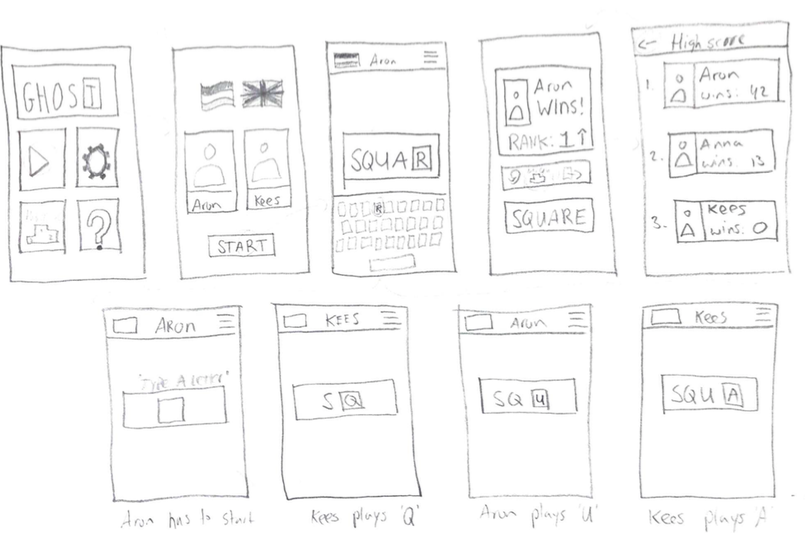 GHOST
?
Aron
Kees
START
Aron
SQUAR
R
Aron
WINS!
RANK: 1↑
SQUARE
← High score
1. Aron
wins: 42
2. Anna
wins: 13
3. Kees
wins: 0
ARON
"TYPE A LETTER"
Aron has to start
KEES
SQ
Kees plays 'Q'
Aron
SQU
Aron plays 'U'
Kees
SQUA
Kees plays 'A'